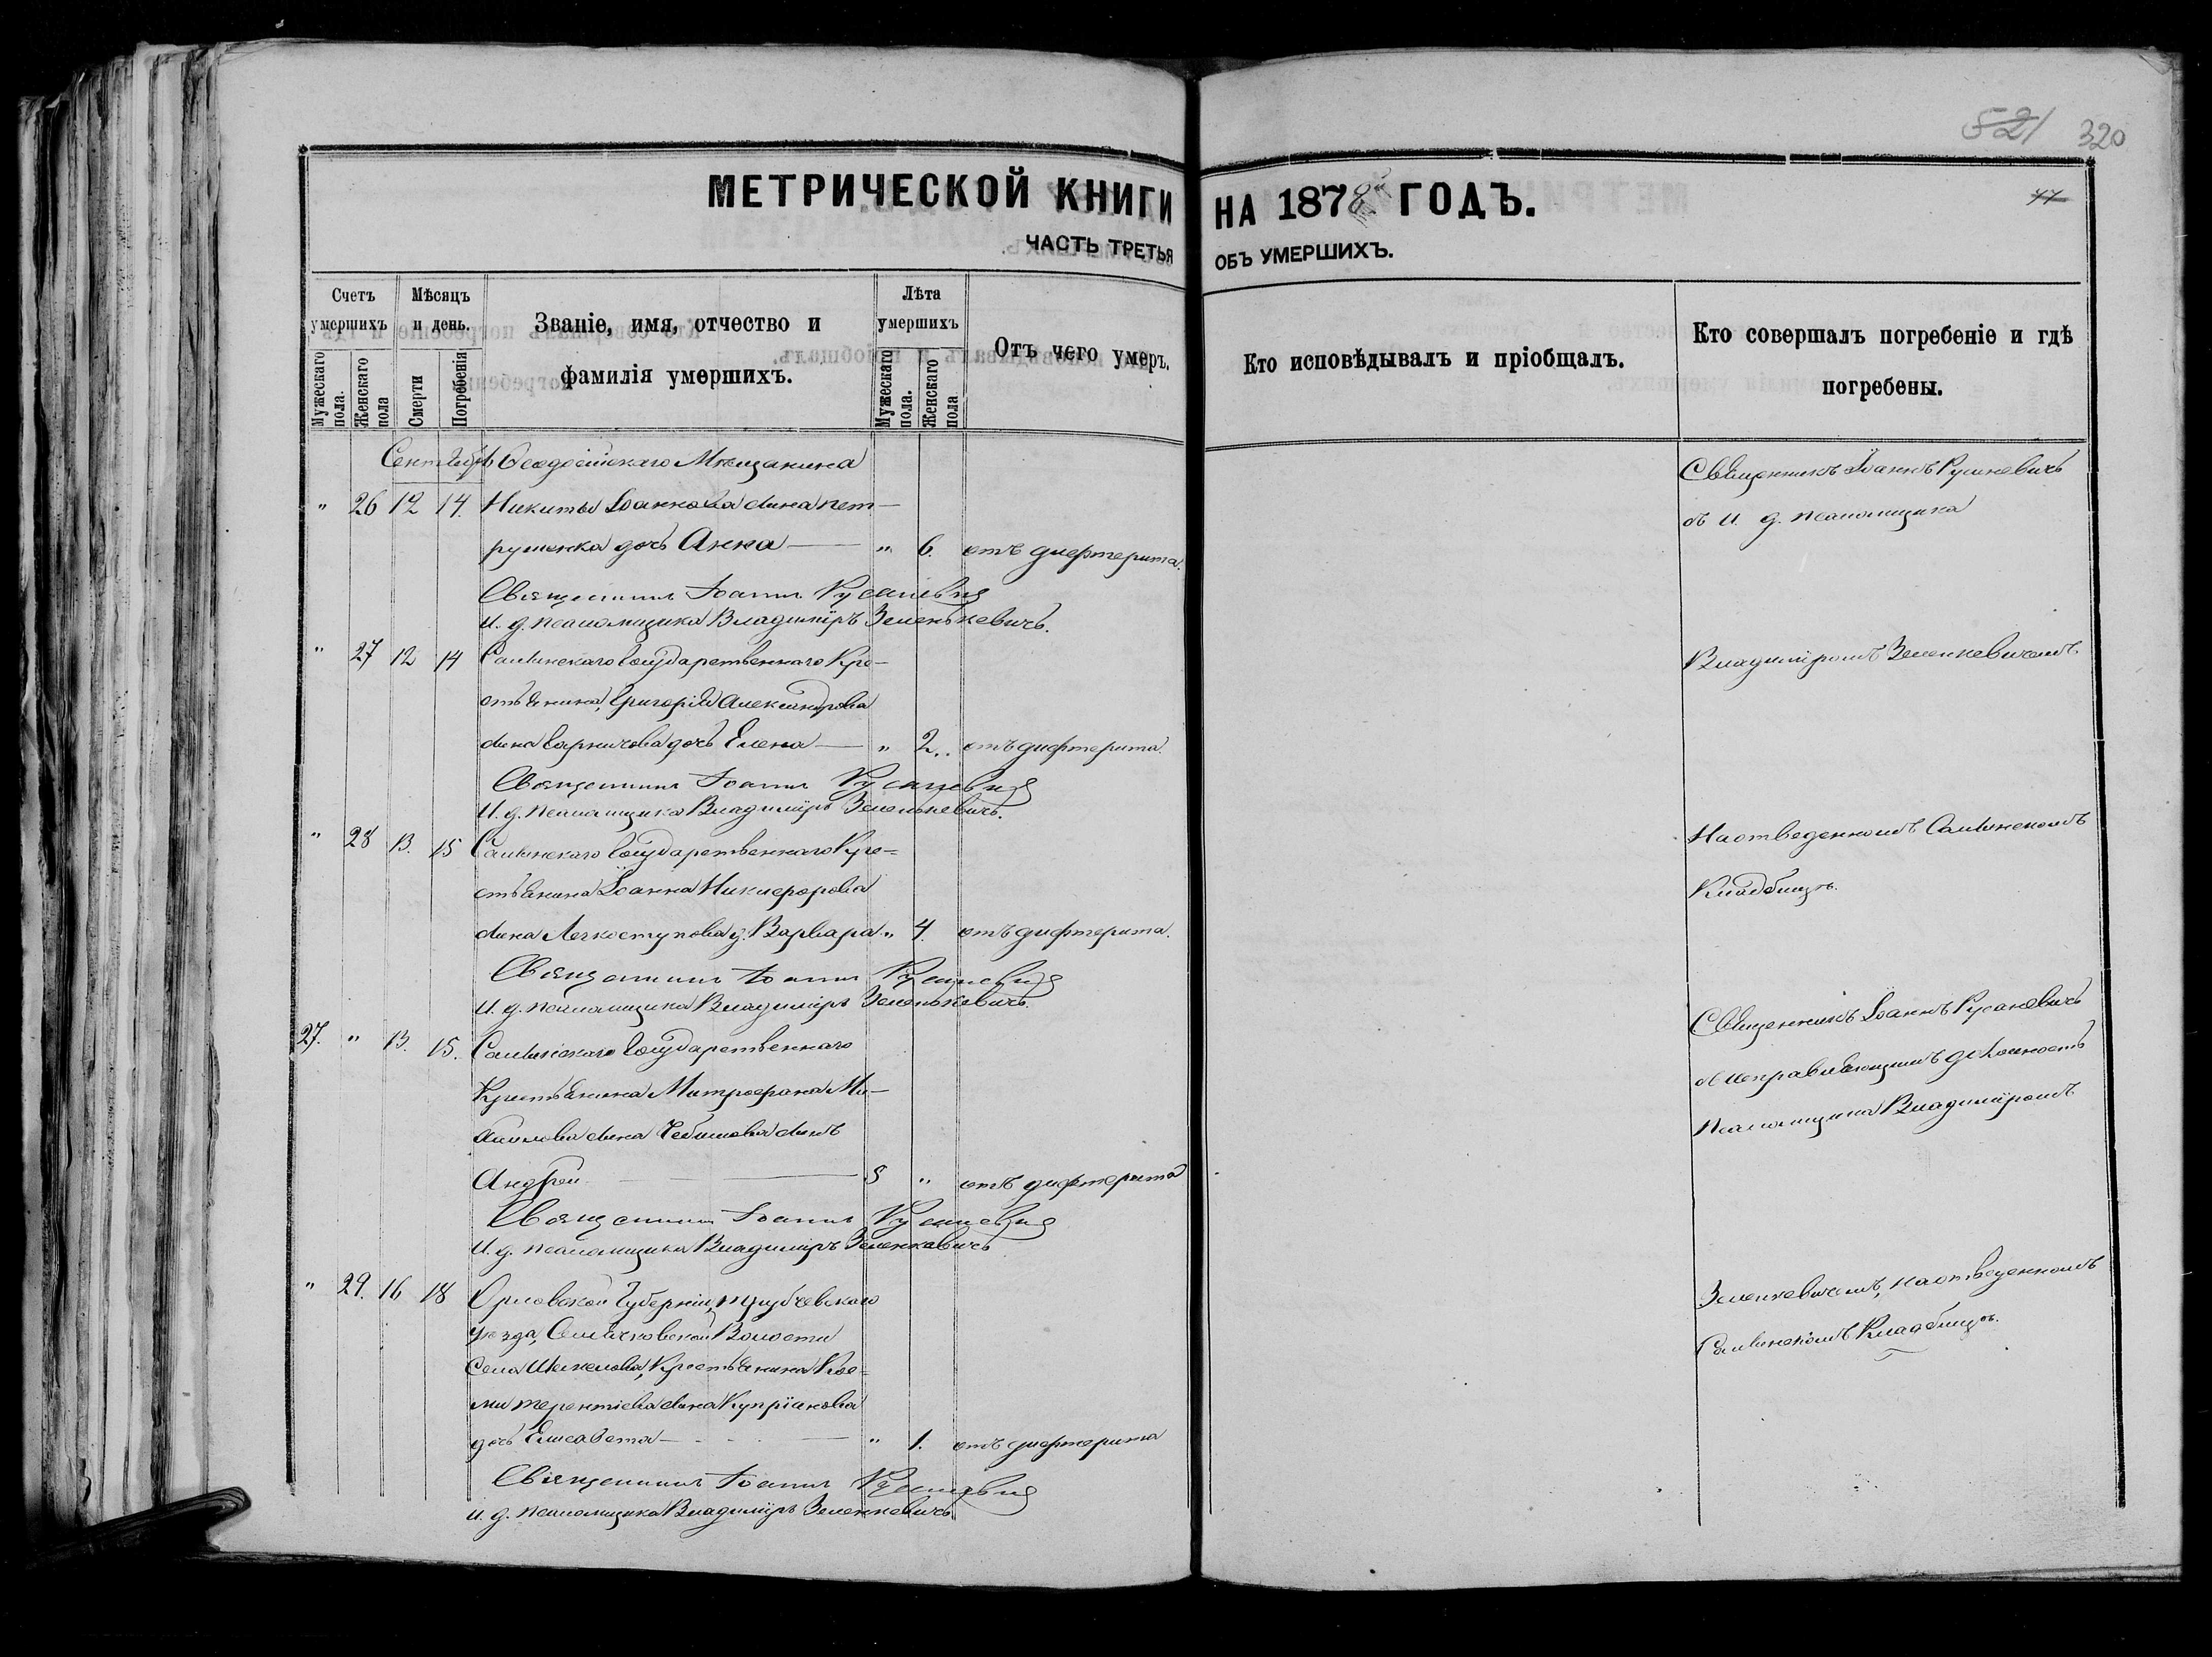 521 320
МЕТРИЧЕСКОЙ КНИГИ НА 1878й ГОДЪ.
77
ЧАСТЬ ТРЕТЬЯ ОБЪ УМЕРШИХЪ.
Счетъ умершихъ
Мужескаго пола.
Женскаго пола
Мѣсяцъ и день.
Смерти
Погребенія
Званіе, имя, отчество и
фамилія умершихъ.
Лѣта умершихъ
Мужескаго пола.
Женскаго пола
Отъ чего умеръ.
Кто исповѣдывалъ и пріобщалъ.
Кто совершалъ погребеніе и гдѣ
погребены.
Сентябрь Ѳеодосійскаго Мѣщанина
" 26 12 14. Никиты Іоаннова сына Пет-
рушенка дочь Анна — " 6. отъ дифтерита.
Священникъ Іоаннъ Русаневичъ
И. д. псаломщика Владиміръ Зеленькевичъ.
" 27 12 14 Салынскаго Государственнаго Кре-
стьянина, Григорія Александрова
сына дочь Елена — " 2.. отъ дифтерита.
Священникъ Іоаннъ Русаневичъ
И. д. псаломщика Владиміръ Зеленькевичъ.
" 28 13. 15 Салынскаго Государственнаго Кре=
стьянина Іоанна Никифорова
сына Легкоступова д. Варвара " 4. отъ дифтерита.
Священникъ Іоаннъ Русаневичъ
И. д. псаломщика Владиміръ Зеленькевичъ.
27. " 13. 15. Салынскаго Государственнаго
Крестьянина Митрофана Ми-
хаилова сына сынъ
Андрей — 5 " отъ дифтерита
Священникъ Іоаннъ Русаневичъ
И. д. псаломщика Владиміръ Зеленкевичъ
" 29. 16 18 Орловской Губерніи, Трубчевскаго
уѣзда, Семячковской Волости
Села Крестьянина Кос=
мы Терентіева сына Купріянова
дочь Елисавета — " 1. отъ дифтерита
Священникъ Іоаннъ Русаневичъ
И. д. псаломщика Владиміръ Зеленкевичъ
Священникъ Іоаннъ Русаневичъ
съ И. д. псаломщика
Владиміромъ Зеленкевичемъ
На отведенномъ Салынскомъ
Кладбищѣ.
Священникъ Іоаннъ Русаневичъ
съ исправляющимъ должность
псаломщика Владиміромъ
Зеленкевичемъ, на отведенномъ
Салынскомъ Кладбищѣ.